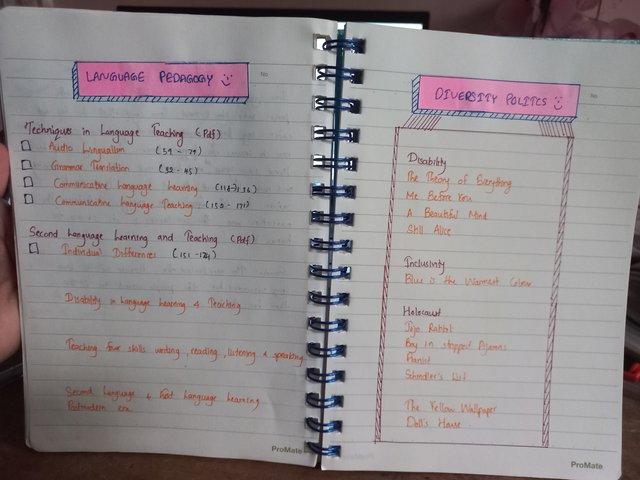 LANGUAGE PEDAGOGY
No
Techniques in Language Teaching (Pdf)
Audio Lingualism (59 - 79)
Grammar Translation (32 - 45)
Communicative Language Learning (114-136)
Communicative Language Teaching (150 - 171)
Second Language Learning and Teaching (Pdf)
Individual Differences (151 - 174)
Disability in Language Learning & Teaching
Teaching four skills writing, reading, listening & speaking
Second Language & First Language Learning
Postmodern era
ProMate
DIVERSITY POLITCS
No
Disability
The Theory of Everything
Me Before You
A Beautiful Mind
Still Alice
Inclusivity
Blue is the Warmest Colour
Holocaust
Jojo Rabbit
Boy in stripped Pyjamas
Pianist
Schindler's List
The Yellow Wallpaper
Doll's House
ProMate